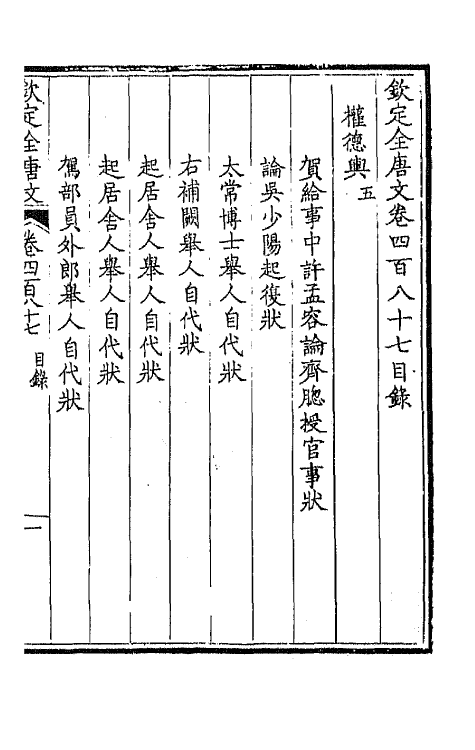 欽定全唐文卷四百八十七目錄
權德輿五
賀給事中許孟容論齊𦙍授官事狀
論吳少陽起復狀
太常博士舉人自代狀
右補闕舉人自代狀
起居舍人舉人自代狀
起居舍人舉人自代狀
駕部員外郎舉人自代狀
欽定全唐文 卷四百八十七 目錄 一